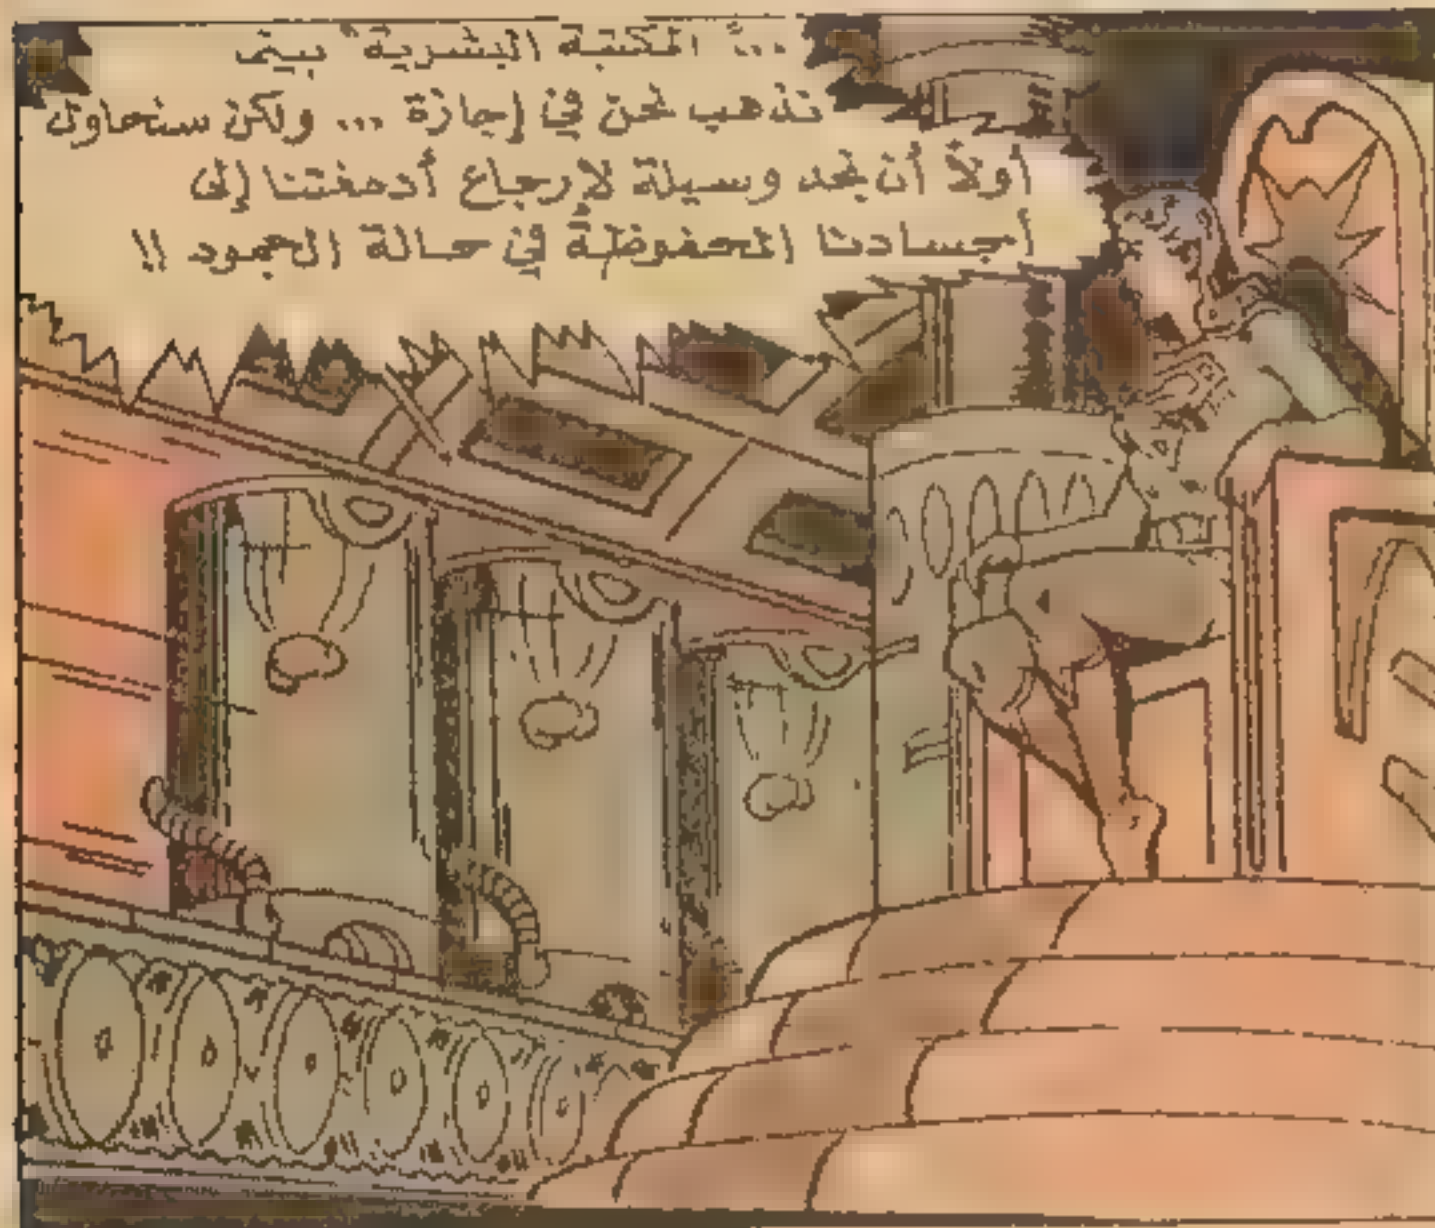 ..." المكتبة البشرية" بينما
نذهب نحن في إجازة ... ولكن سنحاول
أولاً أن نجد وسيلة لإرجاع أدمغتنا إلى
أجسادنا المحفوظة في حالة الجمود !!